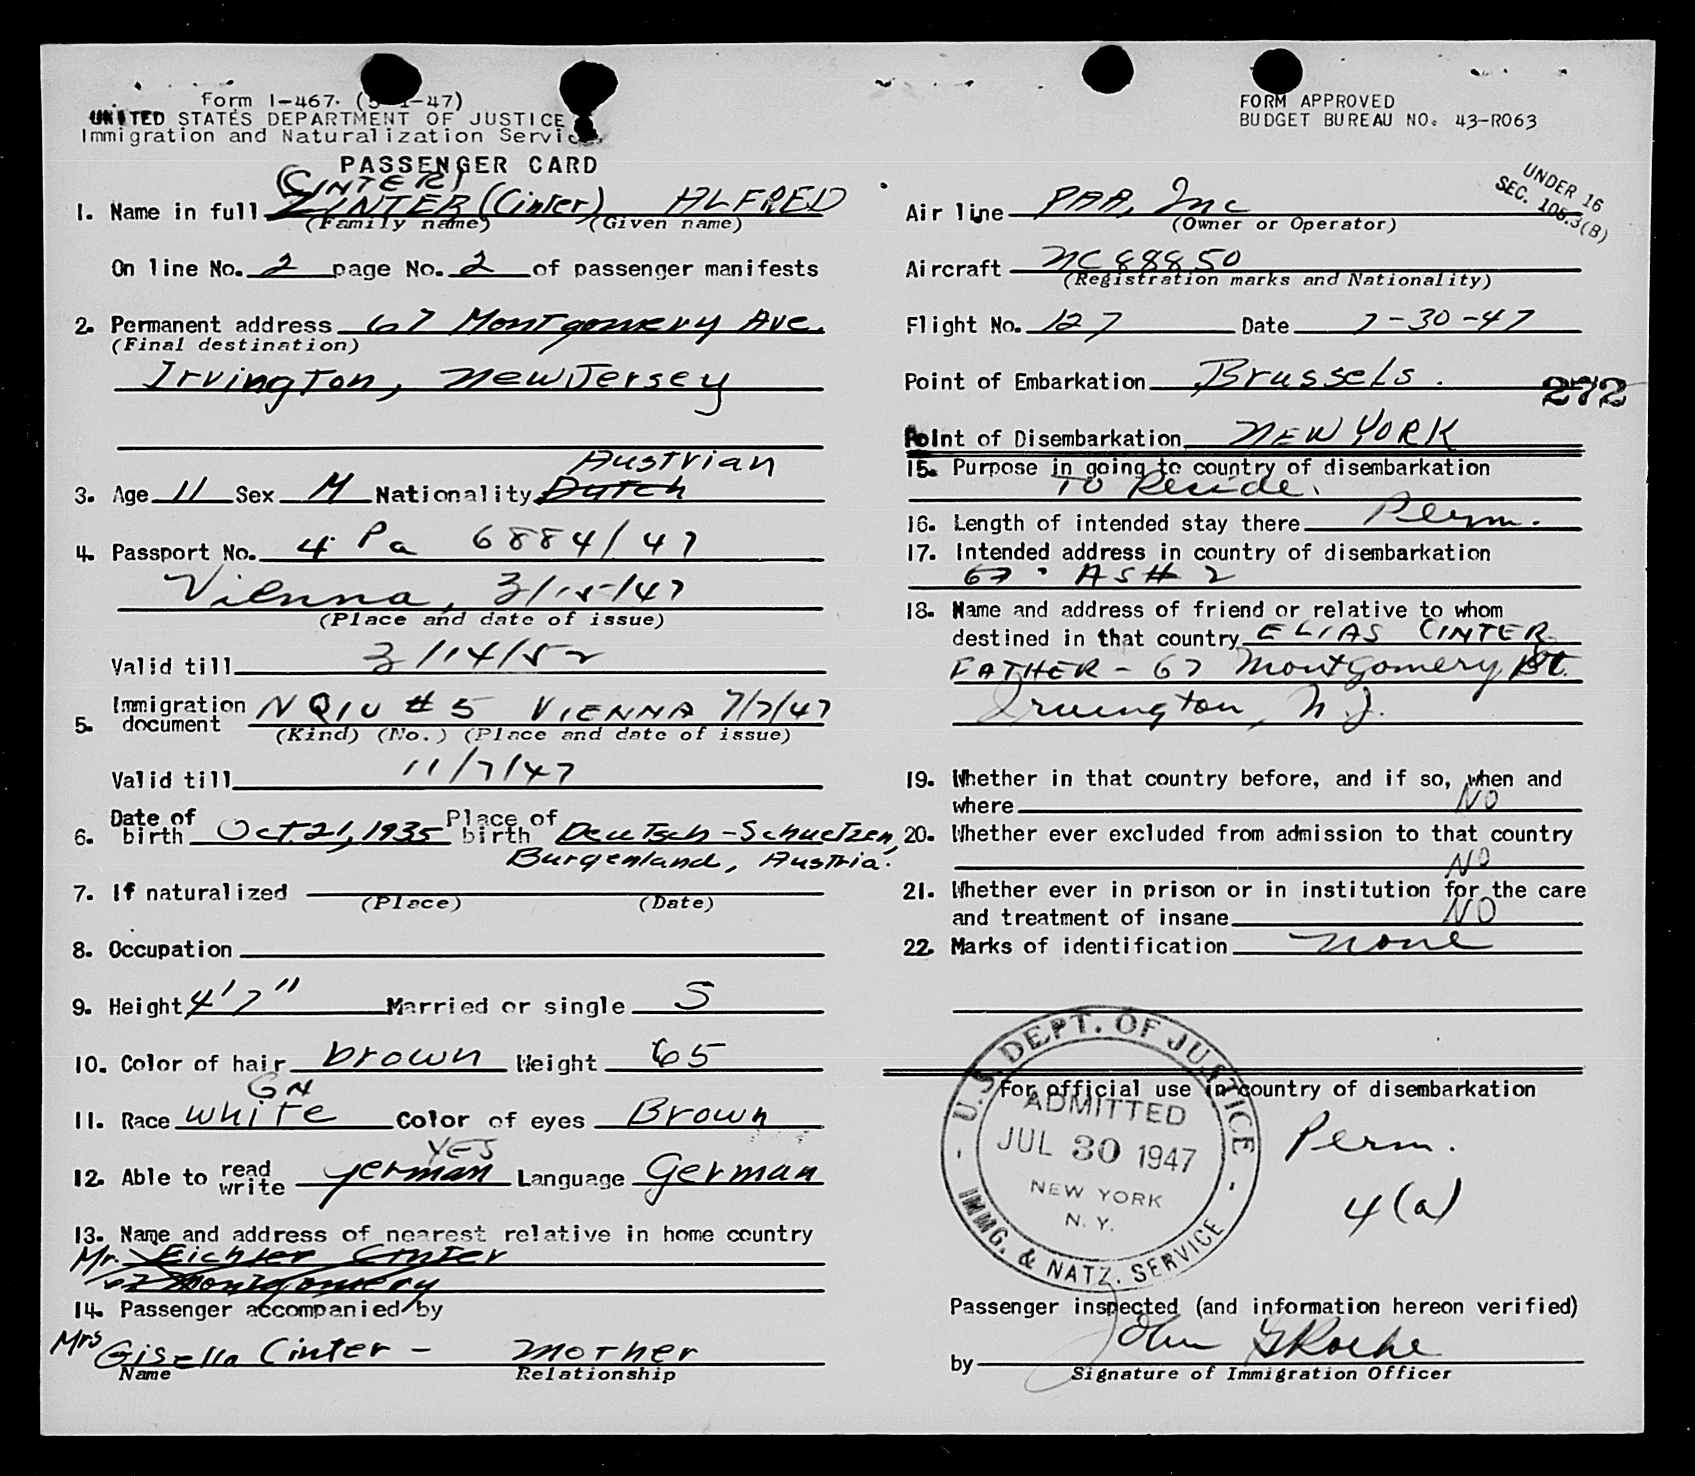 Form I-467. (5-1-47)
UNITED STATES DEPARTMENT OF JUSTICE
Immigration and Naturalization Service
PASSENGER CARD
FORM APPROVED
BUDGET BUREAU NO. 43-R063
UNDER 16
SEC. 106.3(B)
(CINTER)
1. Name in full ZINTER (Cinter) ALFRED
(Family name) (Given name)
On line No. 2 page No. 2 of passenger manifests
2. Permanent address 67 Montgomery Ave.
(Final destination)
Irvington, New Jersey
Austrian
3. Age 11 Sex M Nationality Dutch
4. Passport No. 4 Pa 6884/47
Vienna, 3/15/47
(Place and date of issue)
Valid till 3/14/52
5. Immigration document NQIU # 5 VIENNA 7/7/47
(Kind) (No.) (Place and date of issue)
Valid till 11/7/47
6. Date of birth Oct. 21, 1935 Place of birth Deutsch-Schuetzen,
Burgenland, Austria.
7. If naturalized
(Place) (Date)
8. Occupation
9. Height 4' 7" Married or single S
10. Color of hair brown Weight 65
GN
11. Race white Color of eyes Brown
YES
12. Able to read write german Language German
13. Name and address of nearest relative in home country
Mr. Cinter
67 Montgomery
14. Passenger accompanied by
Mrs Gisella Cinter - Mother
Name Relationship
Air line PAA, Inc
(Owner or Operator)
Aircraft NC 88850
(Registration marks and Nationality)
Flight No. 127 Date 7-30-47
Point of Embarkation Brussels.
272
Point of Disembarkation NEW YORK
15. Purpose in going to country of disembarkation
To Reside.
16. Length of intended stay there Perm.
17. Intended address in country of disembarkation
67 · AS # 2
18. Name and address of friend or relative to whom
destined in that country ELIAS CINTER
FATHER - 67 Montgomery St.
Irvington, N.J.
19. Whether in that country before, and if so, when and
where NO
20. Whether ever excluded from admission to that country
NO
21. Whether ever in prison or in institution for the care
and treatment of insane NO
22. Marks of identification none
For official use in country of disembarkation
U.S. DEPT. OF JUSTICE
ADMITTED
JUL 30 1947
NEW YORK
N. Y.
IMMG. & NATZ. SERVICE
Perm.
4(a)
Passenger inspected (and information hereon verified)
by John
Signature of Immigration Officer